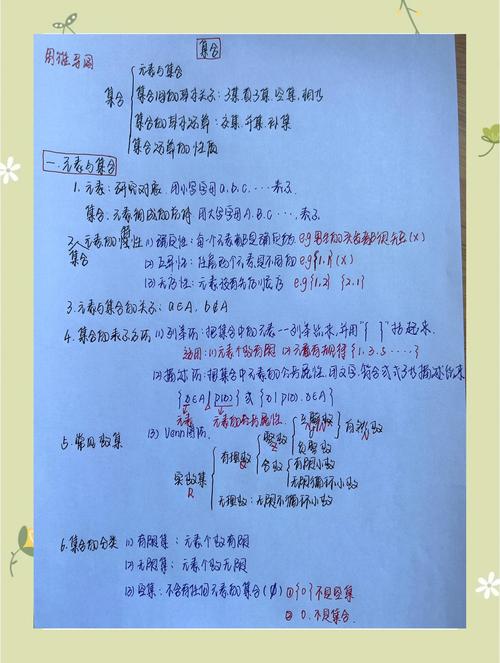 集合
思维导图
集合
元素与集合
集合间的基本关系：子集真子集.空集.相等
集合的基本运算：交集.并集.补集
集合运算的性质
一.元素与集合
1. 元素：研究对象 用小写字母a.b.c.····表示
集合：元素组成的总体 用大写字母A.B.C····表示
2. 元素的属性 (1) 确定性：每个元素都是确定的 e.g (×)
集合 (2) 互异性：任意两个元素是不同的 e.g{1,1} (×)
(3) 无序性：元素没有先后顺序 e.g {1,2} {2,1}
3. 元素与集合的关系：a∈A, b∉A
4. 集合的表示方法 (1) 列举法：把集合中的元素一一列举出来,并用"{ }"括起来.
适用：(1)元素个数有限 (2)元素有规律 {1,3,5····}
(2) 描述法：把集合中元素的公共属性,用文字,符合式子描述出来
{x∈A | p(x)} 或 {x | p(x),x∈A}
元素 元素的公共属性
(3) Venn图法.
5. 常用数集
实数集 R
有理数 Q
整数 Z
自然数 N
负整数
分数
有限小数
无限循环小数
无理数：无限不循环小数
6. 集合的分类 (1) 有限集：元素个数有限
(2) 无限集：元素个数无限
(3) 空集：不含有任何元素的集合(∅) ①{0}不是空集
② 0.不是集合.